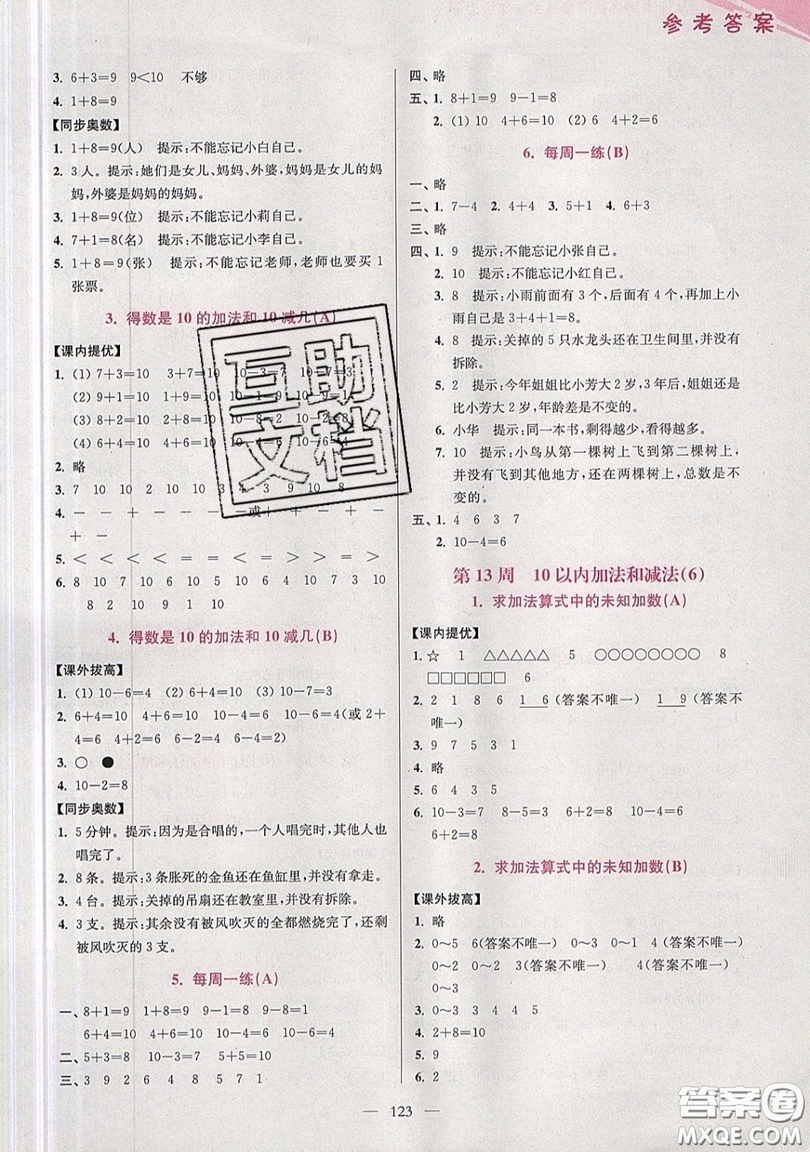 参考答案
3. 6+3=9 9<10 不够
4. 1+8=9
【同步奥数】
1. 1+8=9(人) 提示:不能忘记小白自己。
2. 3人。提示:她们是女儿、妈妈、外婆,妈妈是女儿的妈
妈,外婆是妈妈的妈妈。
3. 1+8=9(位) 提示:不能忘记小莉自己。
4. 7+1=8(名) 提示:不能忘记小李自己。
5. 1+8=9(张) 提示:不能忘记老师,老师也要买1
张票。
3. 得数是10的加法和10减几(A)
【课内提优】
1. (1) 7+3=10 3+7=10
(2) 9+1=10
(3) 8+2=10 10-8=2 10-2=8
(4) 6+4=10 10-6=4
2. 略
3. 7 10 10 2 10 4 3 9 10 8
4. - - + - -或+ + - + -
+ -
5. < < < = = > = < = =
6. 8
10 8 2 10 9 1 10
4. 得数是10的加法和10减几(B)
【课外拔高】
1. (1) 10-6=4 (2) 10-7=3
2. 6+4=10 10-4=6 10-6=4(或2+
4=6 4+2=6 6-2=4 6-4=2)
3. ○ ●
4. 10-2=8
【同步奥数】
1. 5分钟。提示:因为是合唱的,一个人唱完时,其他人也
唱完了。
2. 8条。提示:3条胀死的金鱼还在鱼缸里,并没有拿走。
3. 4台。提示:关掉的吊扇还在教室里,并没有拆除。
4. 3支。提示:其余没有被风吹灭的全都燃烧完了,还剩
被风吹灭的3支。
5. 每周一练(A)
一、8+1=9 1+8=9 9-1=8 9-8=1
6+4=10 4+6=10 10-4=6 10-6=4
二、5+3=8 10-3=7 5+4=9 10-5=5
三、3 9 2 6 4 8 5 7 1
四、略
五、1. 8+1=9 9-1=8
2. (1) 10 4+6=10 (2) 6 4+2=6
6. 每周一练(B)
一、略
二、1. 7-4 2. 4+4 3. 5+1 4. 6+3
三、略
四、1. 9 提示:不能忘记小张自己。
2. 10 提示:不能忘记小红自己。
3. 8 提示:小雨前面有3个,后面有4个,再加上小
雨自己是3+4+1=8。
4. 8 提示:关掉的5只水龙头还在卫生间里,并没有
拆除。
5. 2 提示:今年姐姐比小芳大2岁,3年后,姐姐还是
比小芳大2岁,年龄差是不变的。
6. 小华 提示:同一本书,剩得越少,看得越多。
7. 10 提示:小鸟从第一棵树上飞到第二棵树上,
并没有飞到其他地方,还在两棵树上,总数是不
变的。
五、1. 4 6 3 7
2. 10-4=6
第13周 10以内加法和减法(6)
1. 求加法算式中的未知加数(A)
【课内提优】
1. ☆ 1 △△△△△ 5 ○○○○○○○○ 8
□□□□□□ 6
2. 2 1 8 6 1 6(答案不唯一) 1 9(答案不
唯一)
3. 9 7 5 3 1
4. 略
5. 6 4 3 5
6. 10-3=7 8-5=3 6+4=10 10-4=6
6+2=8
2. 求加法算式中的未知加数(B)
【课外拔高】
1. 略
2. 0~5 6(答案不唯一) 0~3 4(答案不唯一)
0~4 5(答案不唯一) 0~1 2(答案不唯一)
0~3
3. 0~3 3 4 4 5
4. 2+8=10
5. 9
6. 2
123
互助
文档
答案圈
MXQE.COM